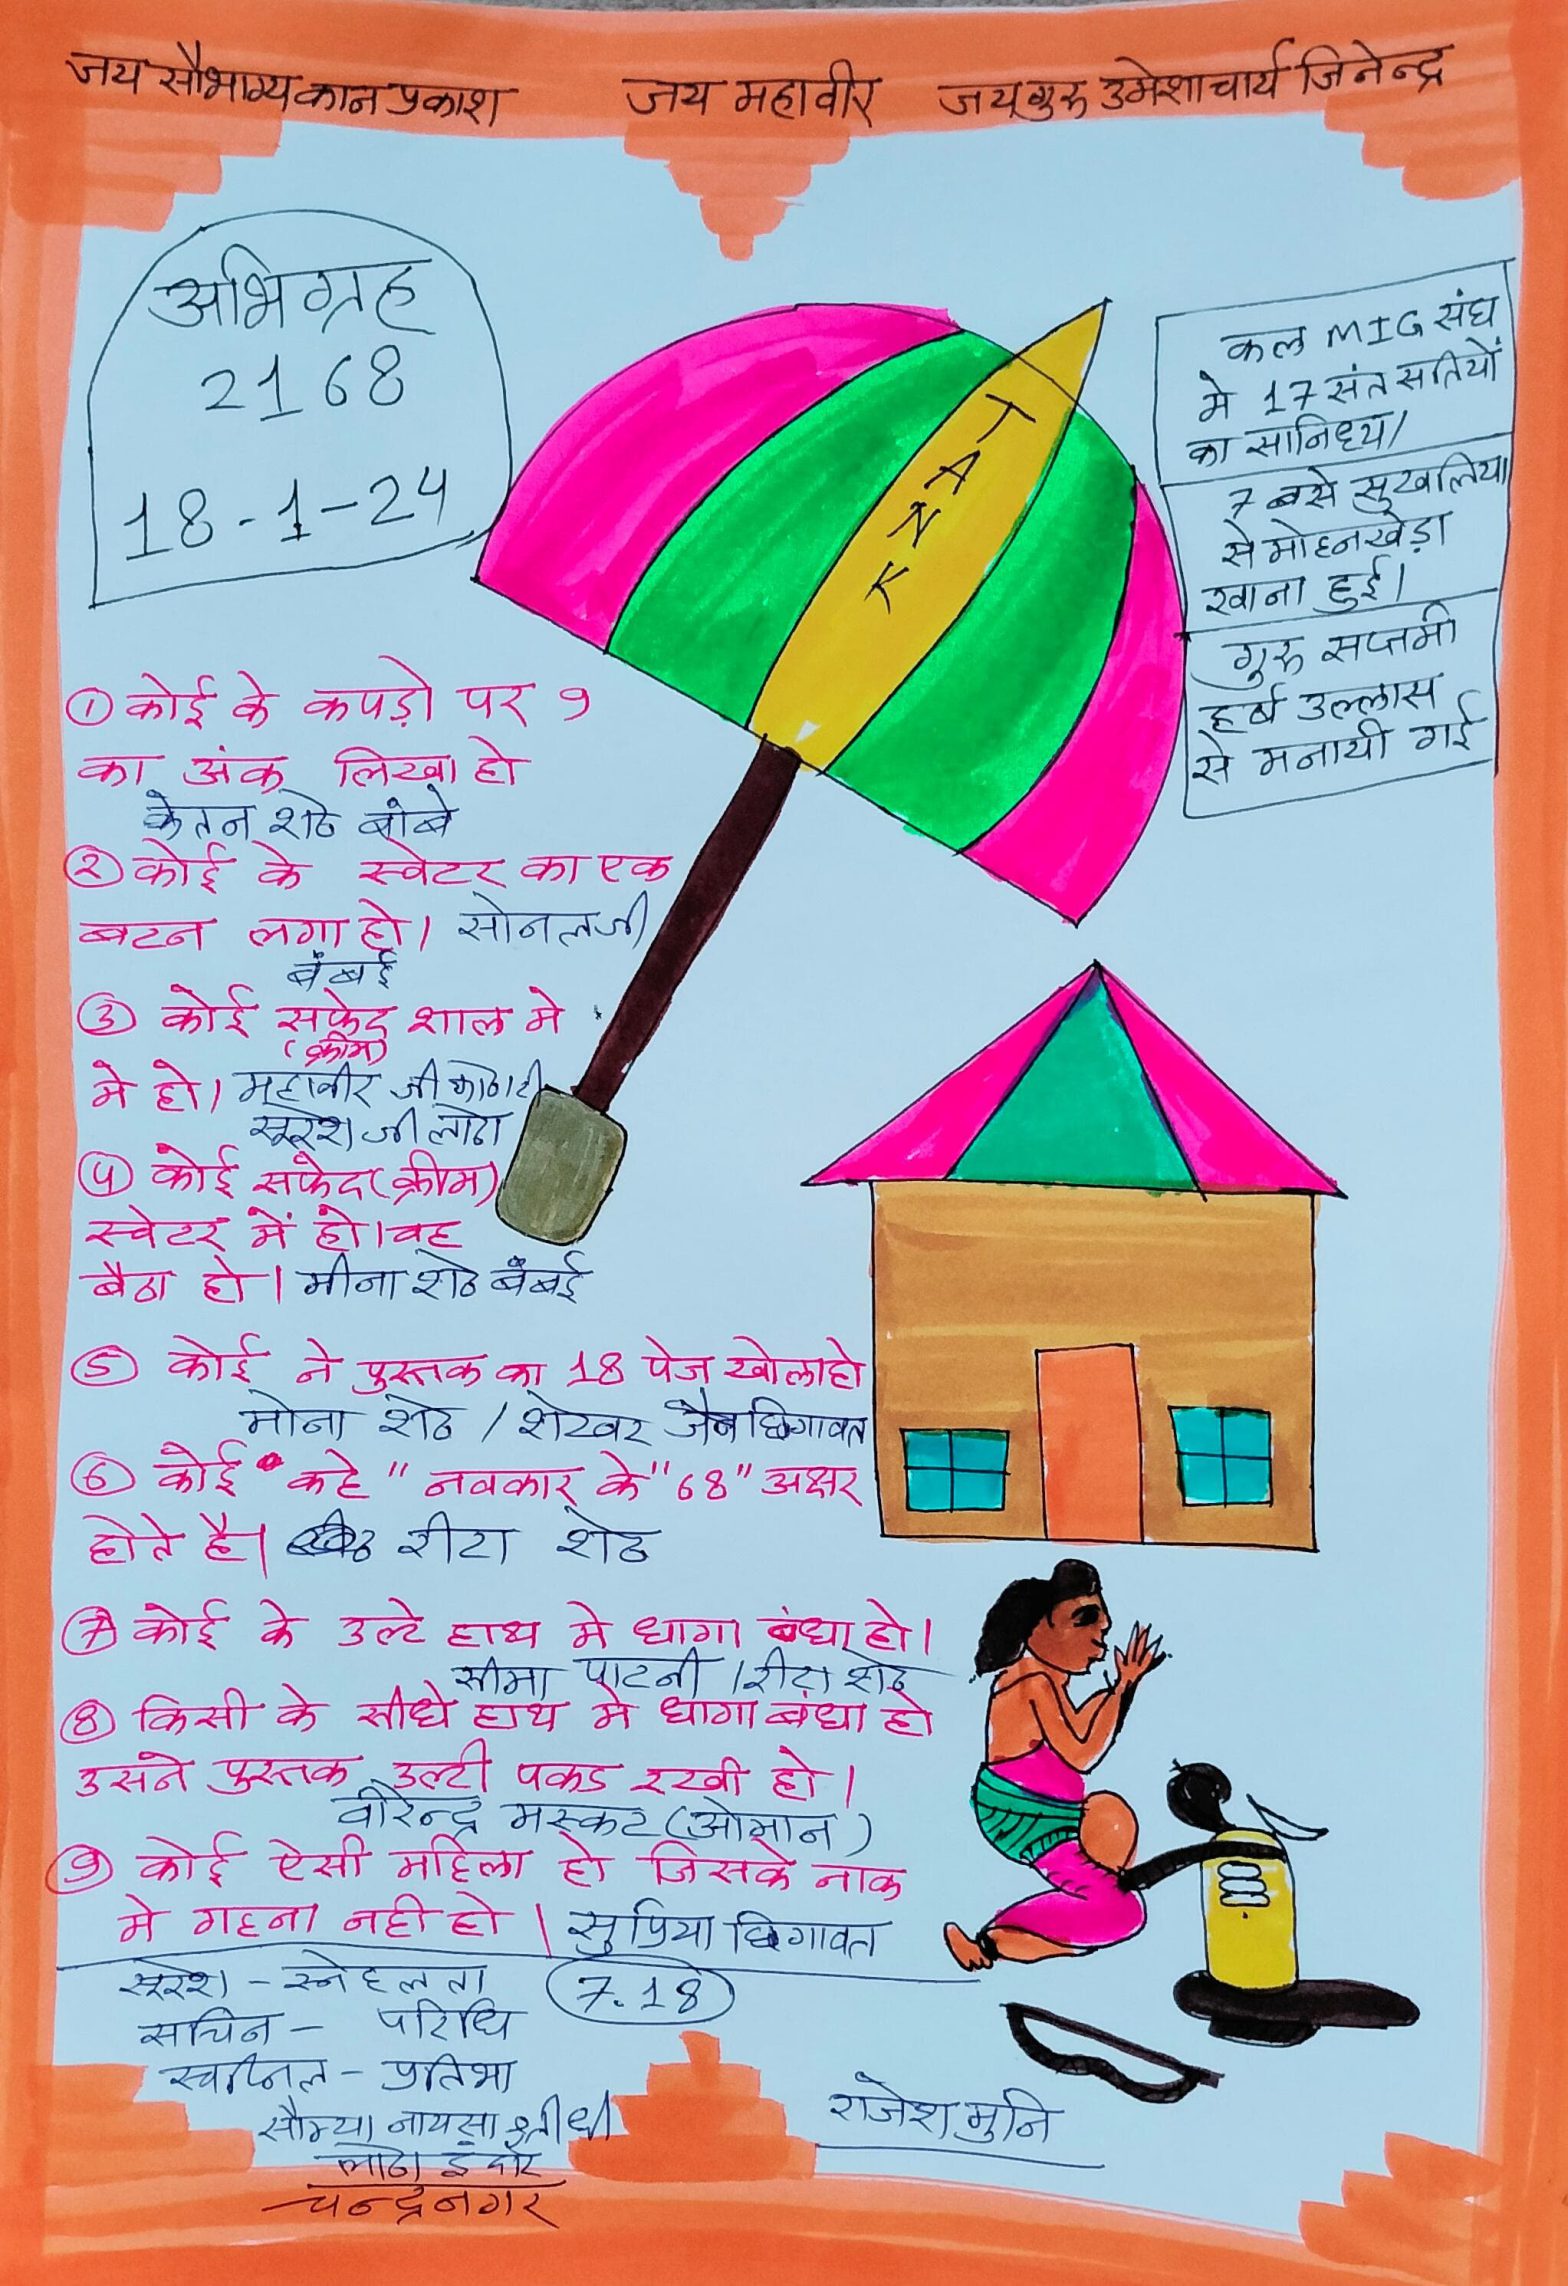 जय सौभाग्य कान प्रकाश जय महावीर जय गुरु उमेशाचार्य जिनेन्द्र
अभिग्रह
2168
18-1-24
TANK
कल MIG संघ
मे 17 संत सतियों
का सानिध्य।
7 बसे सुखलिया
से मोहनखेड़ा
रवाना हुई।
गुरु सप्तमी
हर्ष उल्लास
से मनायी गई
① कोई के कपड़ो पर 9
का अंक लिखा हो
केतन शेठ बोंबे
② कोई के स्वेटर का एक
बटन लगा हो। सोनलजी
बंबई
③ कोई सफेद शाल मे
(क्रीम)
मे हो। महावीर जी
सुरेश जी लोढा
④ कोई सफेद (क्रीम)
स्वेटर में हो। वह
बैठा हो। मीना शेठ बंबई
⑤ कोई ने पुस्तक का 18 पेज खोला हो
मोना शेठ / शेखर जैन छिगावत
⑥ कोई कहे "नवकार के "68" अक्षर
होते है। रीटा शेठ
⑦ कोई के उल्टे हाथ मे धागा बंधा हो।
सीमा पाटनी / रीटा शेठ
⑧ किसी के सीधे हाथ मे धागा बंधा हो
उसने पुस्तक उल्टी पकड रखी हो।
वीरेन्द्र मस्कट (ओमान)
⑨ कोई ऐसी महिला हो जिसके नाक
मे गहना नही हो। सुप्रिया छिगावत
सुरेश - स्नेहलता
7.18
सचिन - परिधि
स्वप्निल - प्रतिभा
सौम्या नायसा
लोढा इंदौर
चन्द्रनगर
राजेश मुनि